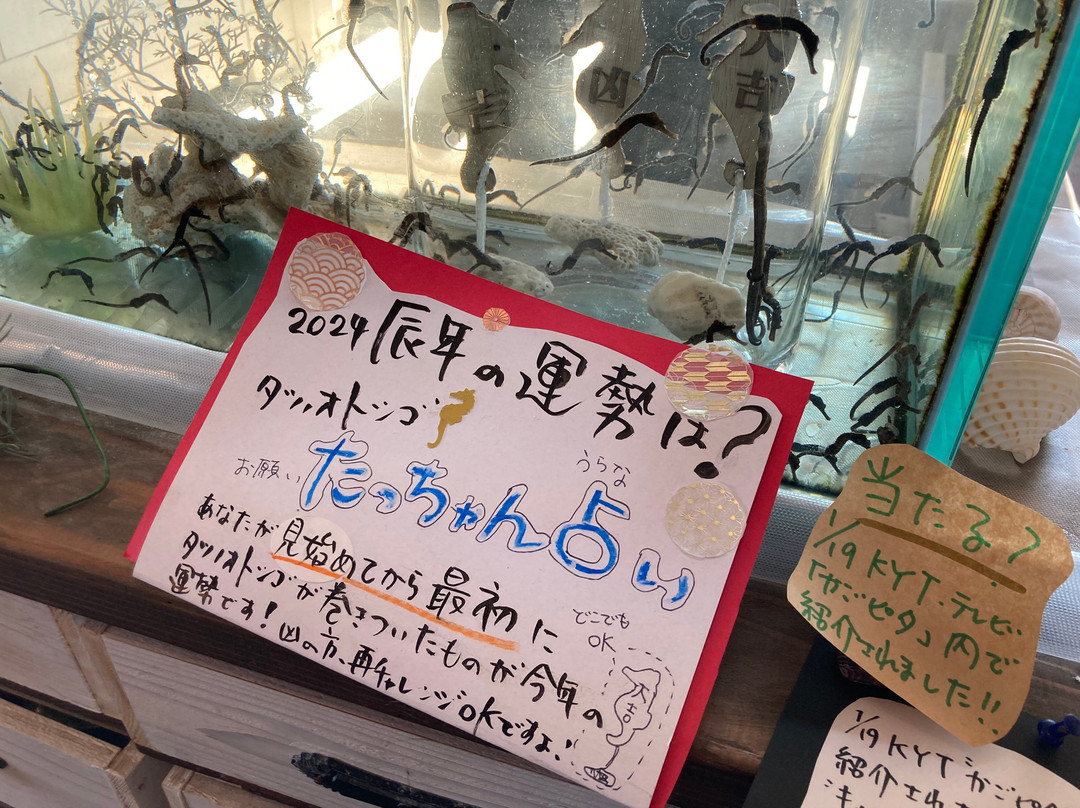 吉
凶
大吉
2024 辰年の運勢は?
タツノオトシゴ
お願い たっちゃん占い
うらな
あなたが見始めてから最初に
タツノオトシゴが巻きついたものが今年の
運勢です! 凶の方、再チャレンジOKですよ!
どこでも
OK
大吉
当たる?
1/19 KYT.テレビ
「かごピタ」内で
紹介されました!!
1/19 KYT "かご
紹介され